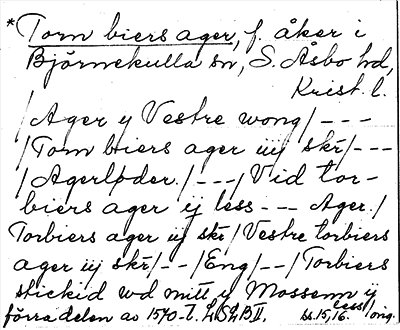 *Torn biers ager, f. åker i
Björnekulla sn, S. Åsbo hd,
Krist. l.
/Ager y Vestre wong/---
/Torn biers ager iiij skr/---
/Agerløder./---/Vid tor-
biers ager ij less --- Ager./
Torbiers ager iij skr/Vestre torbiers
ager iij skr/--/Eng/--/Torbiers
stickid wd mitt y Mossenn ij
less/
förra delen av 1570-t. LSGB II. ss. 15, 16. orig.